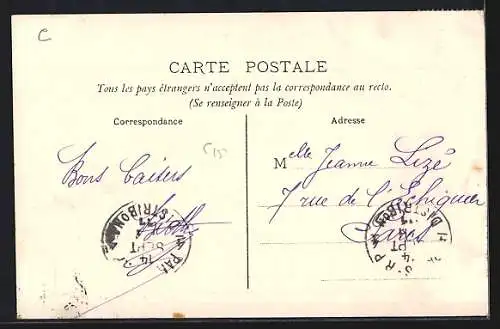 C
CARTE POSTALE
Tous les pays étrangers n'acceptent pas la correspondance au recto.
(Se renseigner à la Poste)
Correspondance
Adresse
Bons baisers
Melle Jeanne Lizé
7 rue de l'Echiquier
Paris
DISTRIBUTION
14
SEPT
PARIS
DISTRIBUTION